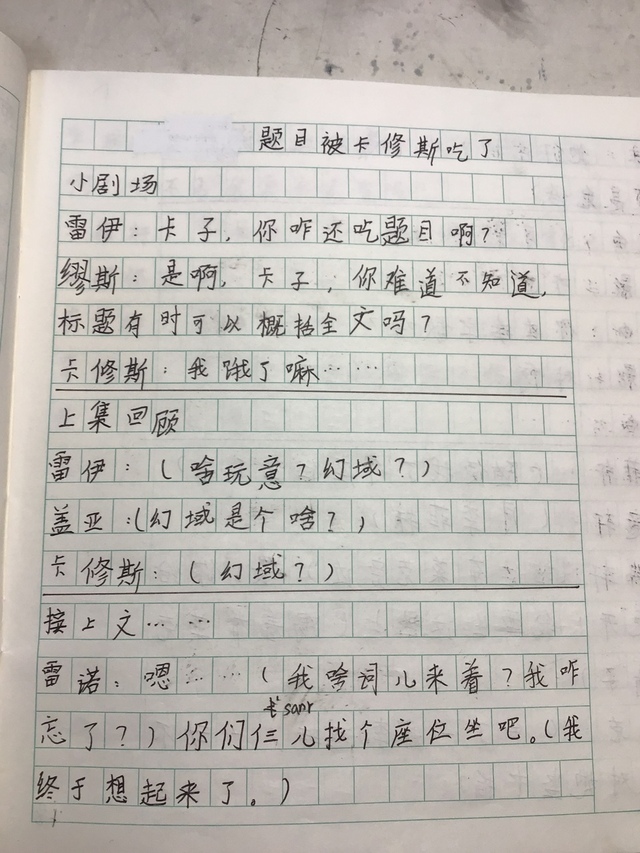 题目被卡修斯吃了
小剧场
雷伊：卡子，你咋还吃题目啊？
缪斯：是啊，卡子，你难道不知道，
标题有时可以概括全文吗？
卡修斯：我饿了嘛……
上集回顾
雷伊：（啥玩意？幻域？）
盖亚：（幻域是个啥？）
卡修斯：（幻域？）
接上文……
雷诺：嗯……（我啥词儿来着？我咋
sānr
忘了？）你们仨儿找个座位坐吧。（我
终于想起来了。）